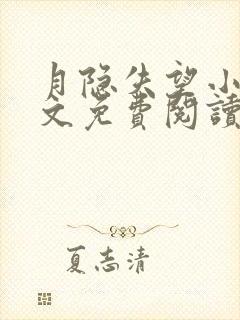 月隐失望小
文免費閱讀
夏志清